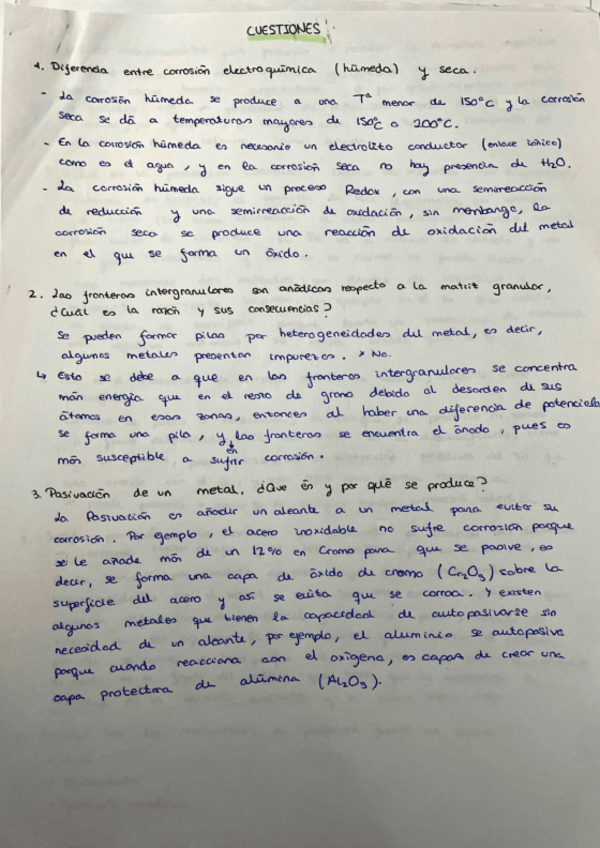 CUESTIONES
1. Diferencia entre corrosión electroquímica (húmeda) y seca.
- La corrosión húmeda se produce a una Tª menor de 150ºC y la corrosión
seca se dá a temperaturas mayores de 150ºC o 200ºC.
- En la corrosión húmeda es necesario un electrolito conductor (enlace iónico)
como es el agua, y en la corrosión seca no hay presencia de H2O.
- La corrosión húmeda sigue un proceso Redox, con una semirreacción
de reducción y una semirreacción de oxidación, sin menbargo, la
corrosión seca se produce una reacción de oxidación del metal
en el que se forma un óxido.
2. Las fronteras intergranulares son anódicas respecto a la matriz granular,
¿Cuál es la razón y sus consecuencias?
Se pueden formar pilas por heterogeneidades del metal, es decir,
algunos metales presentan impurezas. * No.
↳ Esto se debe a que en las fronteras intergranulares se concentra
más energía que en el resto de grano debido al desorden de sus
átomos en esas zonas, entonces al haber una diferencia de potenciales
se forma una pila, y en las fronteras se encuentra el ánodo, pues es
más susceptible a sufrir corrosión.
3. Pasivación de un metal. ¿Que és y por qué se produce?
La Pasivación es añadir un aleante a un metal para evitar su
corrosión. Por ejemplo, el acero inoxidable no sufre corrosión porque
se le añade más de un 12% en Cromo para que se pasive, es
decir, se forma una capa de óxido de cromo (Cr2O3) sobre la
superficie del acero y así se evita que se corroa. Y existen
algunos metales que tienen la capacidad de autopasivarse sin
necesidad de un aleante, por ejemplo, el aluminio se autopasiva
porque cuando reacciona con el oxígeno, es capaz de crear una
capa protectora de alúmina (Al2O3).